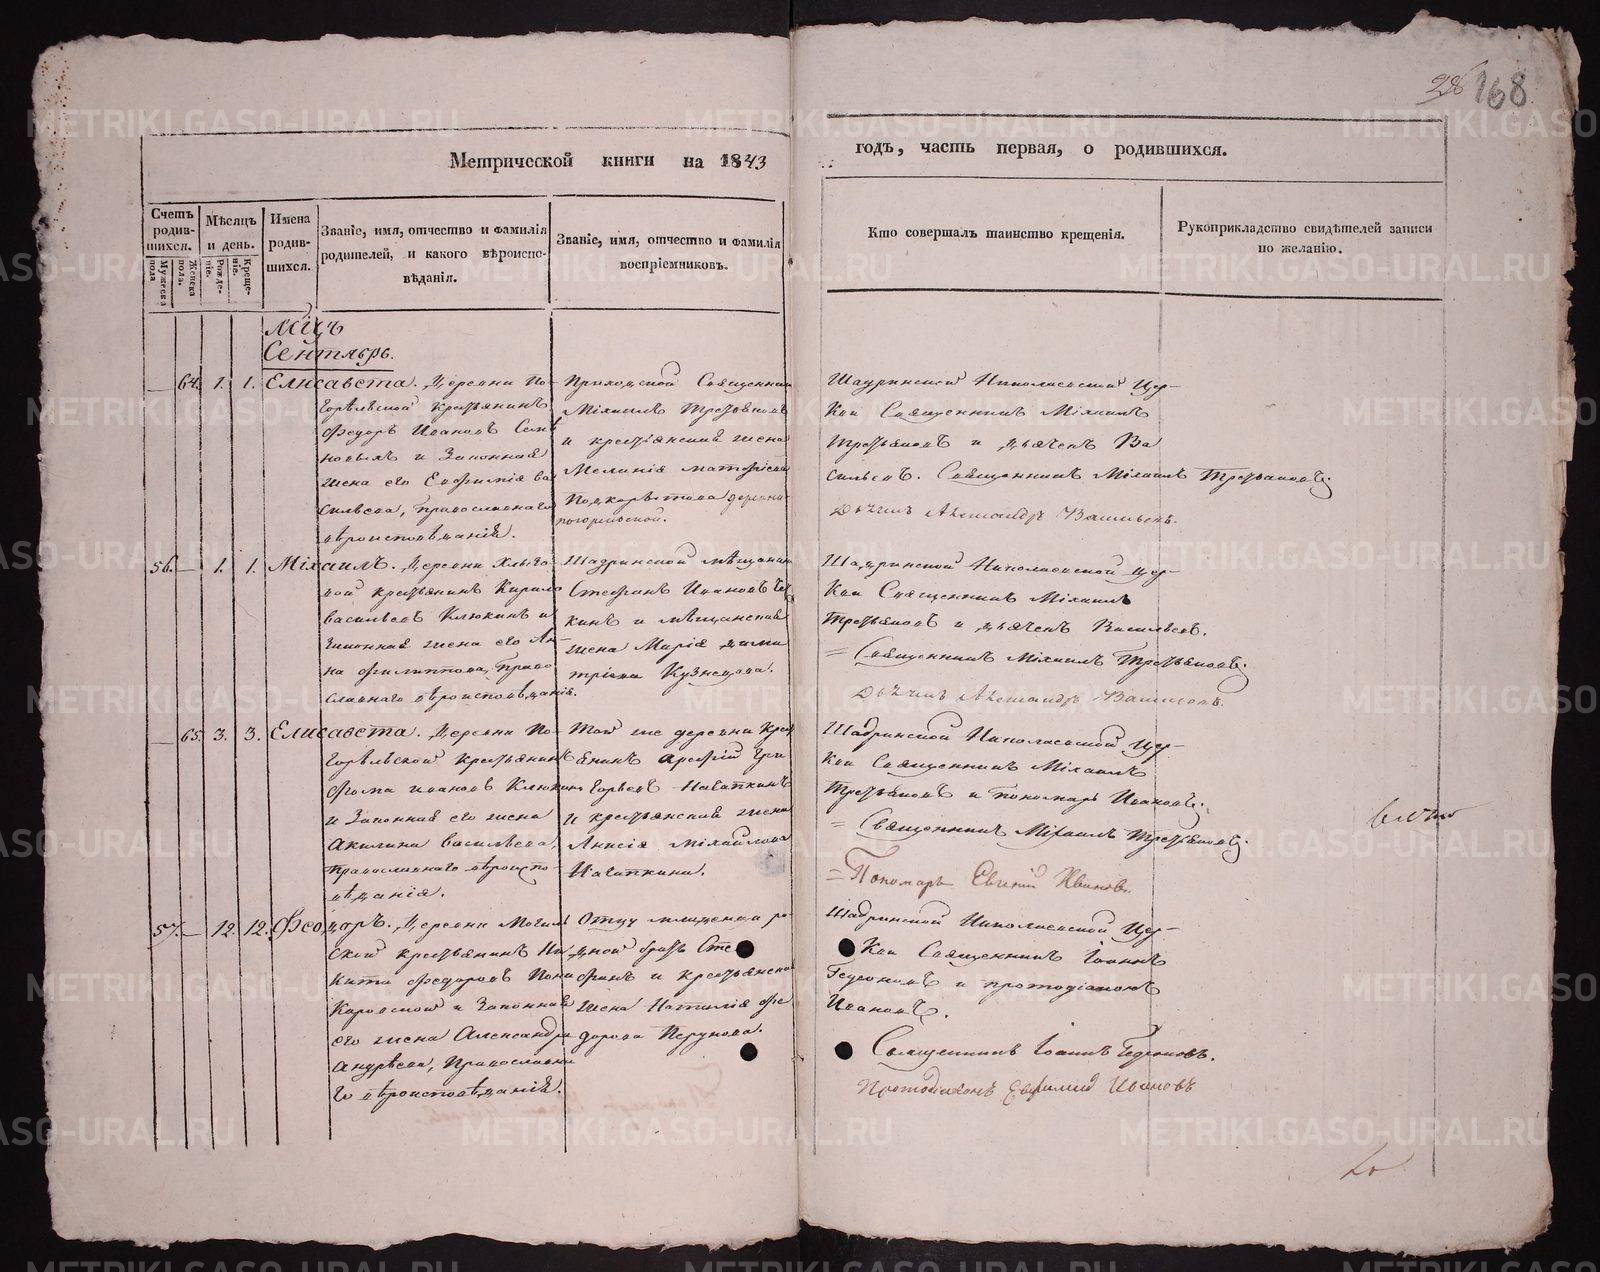 168
Метрической книги на 1843
годъ, часть первая, о родившихся.
Счетъ родив-шихся.
Мужеска пола
Женска пола.
Мѣсяцъ и день.
Рожде-ніе.
Креще-ніе.
Имена родив-шихся.
Званіе, имя, отчество и фамилія
родителей, и какого вѣроиспо-
вѣданія.
Званіе, имя, отчество и фамилія
воспріемниковъ.
Кто совершалъ таинство крещенія.
Рукоприкладство свидѣтелей записи
по желанію.
Сентябрь.
64. 1. 1. Елисавета. Деревни По-
горѣльской крестьянинъ
Федоръ Ивановъ
и законная
жена его Евфимія Ва
сильева, православнаго
вѣроисповѣданія.
Приходской Священникъ
Міхаилъ Третьяковъ
и крестьянская жена
Меланія
деревни
погорѣльской.
Шадринской Николаевской Цер-
кви Священникъ Міхаилъ
Третьяковъ и дьячекъ Ва
сильевъ. Священникъ Міхаилъ Третьяковъ.
Дьячекъ Александръ Васильевъ.
56. 1. 1. Міхаилъ. Деревни
вой крестьянинъ Кирило
Васильевъ Клюкинъ и
законная жена его Ан-
на Филиппова, право
славнаго вѣроисповѣданія.
Шадринской мѣщанинъ
Стефанъ Ивановъ
кинъ и мѣщанская
жена Марія Дими
тріева Кузнецова.
Шадринской Николаевской Цер-
кви Священникъ Міхаилъ
Третьяковъ и дьячекъ Васильевъ.
= Священникъ Міхаилъ Третьяковъ.
Дьячекъ Александръ Васильевъ.
65. 3. 3. Елисавета. Деревни По-
горѣльской крестьянинъ
Фома Ивановъ Клюкинъ
и законная его жена
Акилина Васильева,
православнаго вѣроиспо-
вѣданія.
Той же деревни крест
янинъ Арефій Гри
горьевъ
и крестьянская жена
Анисія Міхайлова
Шадринской Николаевской Цер-
кви Священникъ Міхаилъ
Третьяковъ и пономарь Ивановъ.
= Священникъ Міхаилъ Третьяковъ.
= Пономарь Евгеній Ивановъ.
57. 12. 12. Феодоръ. Деревни
ской крестьянинъ Ни
кита Федоровъ
и законная
его жена Александра
Андрѣева, православна
го вѣроисповѣданія.
Отцу младенца ро
дной братъ Сте
фанъ и крестьянская
жена Наталія Фе
дорова Перунова.
Шадринской Николаевской Цер-
кви Священникъ Іоаннъ
Гедеоновъ и протодіаконъ
Ивановъ.
Священникъ Іоаннъ Гедеоновъ.
Протодіаконъ Евфимій Ивановъ
METRIKI.GASO-URAL.RU